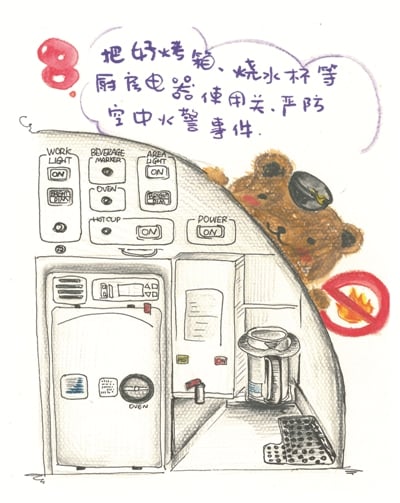 8
把好烤箱、烧水杯等
厨房电器使用关、严防
空中火警事件.
WORK LIGHT
BEVERAGE MARKER
AREA LIGHT
ON
ON
BRIGHT DIM
OVEN
BRIGHT DIM
HOT CUP
ON
POWER
ON
OVEN